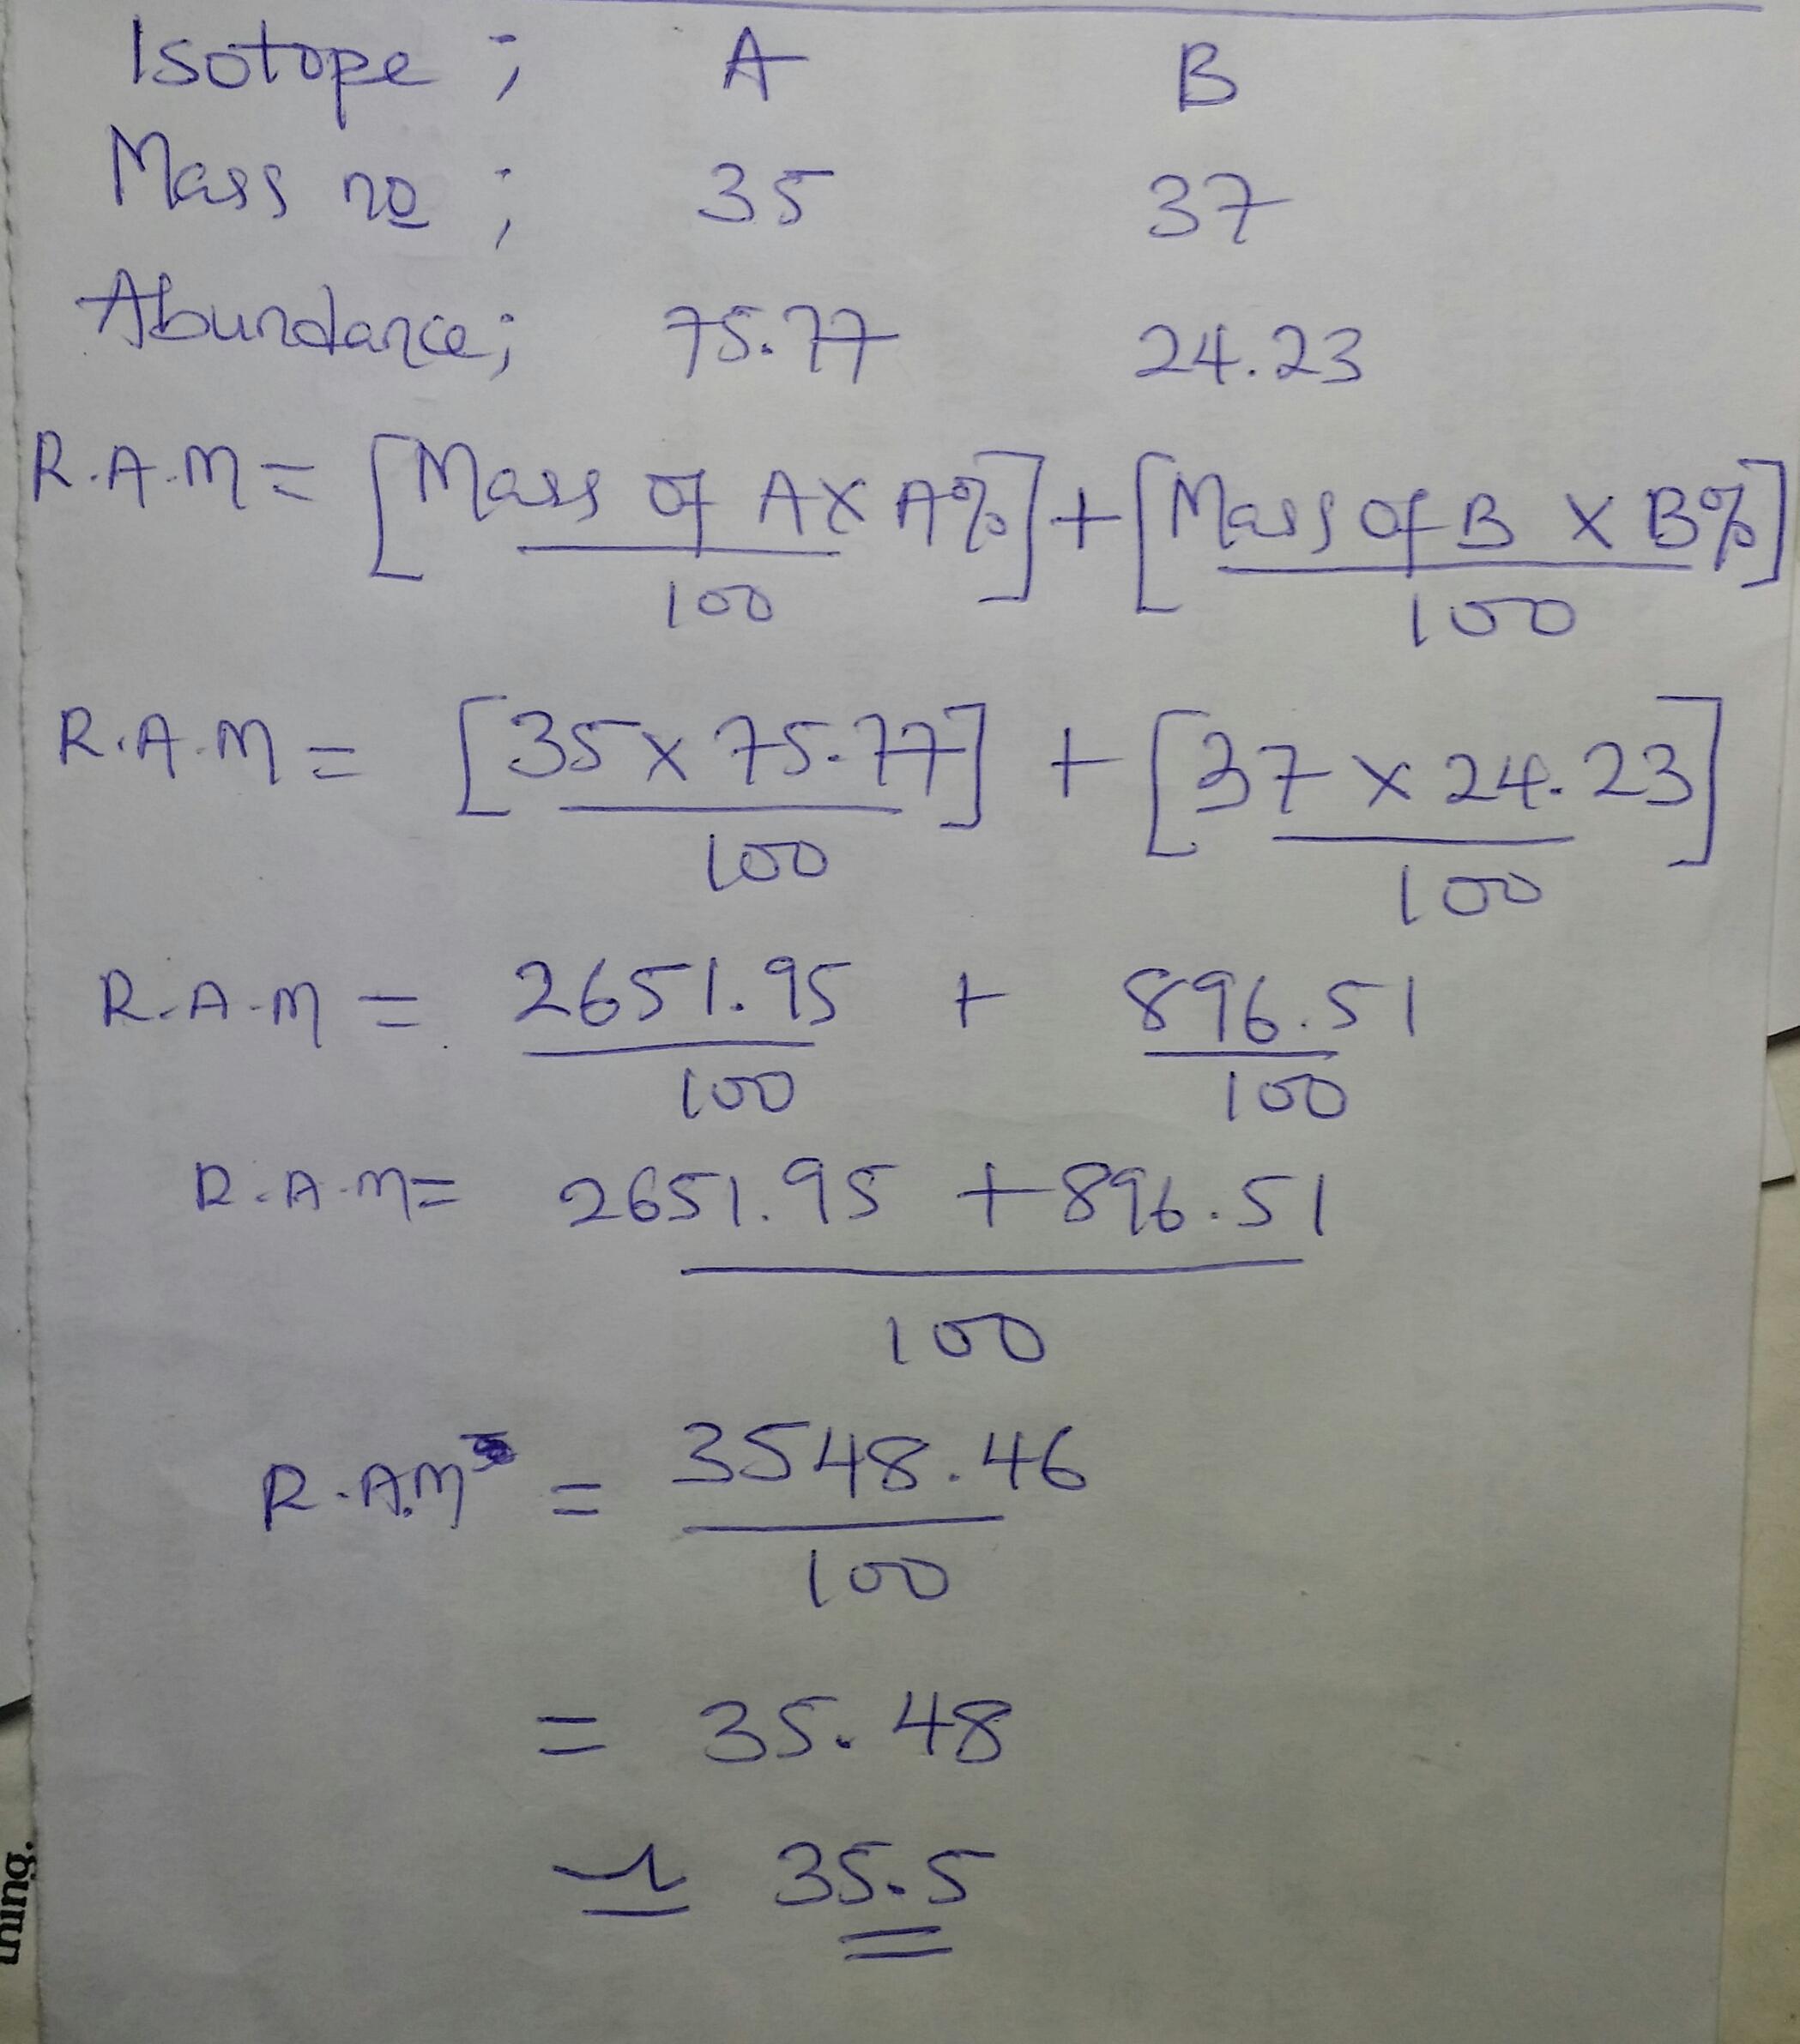 Isotope ; A B
Mass no ; 35 37
Abundance; 75.77 24.23
R.A.M = [Mass of A X A%] + [Mass of B X B%]
100 100
R.A.M = [35 x 75.77] + [37 x 24.23]
100 100
R.A.M = 2651.95 + 896.51
100 100
R.A.M = 2651.95 + 896.51
100
R.A.M = 3548.46
100
= 35.48
≃ 35.5
ning.